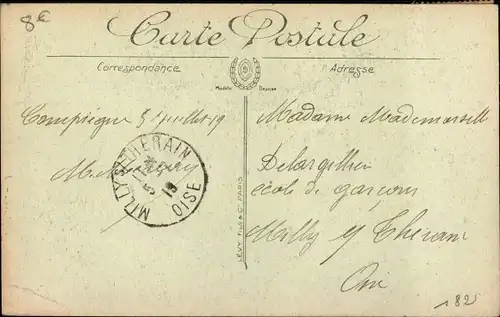 8€
Carte Postale
Correspondance
Adresse
Modèle Déposé
Compiègne 5 juillet 19
Madame Mademoiselle
MILLY-S-THERAIN
19
OISE
école de garçons
Milly s/ Thérain
Oise
LEVY FILS & Cie PARIS
182